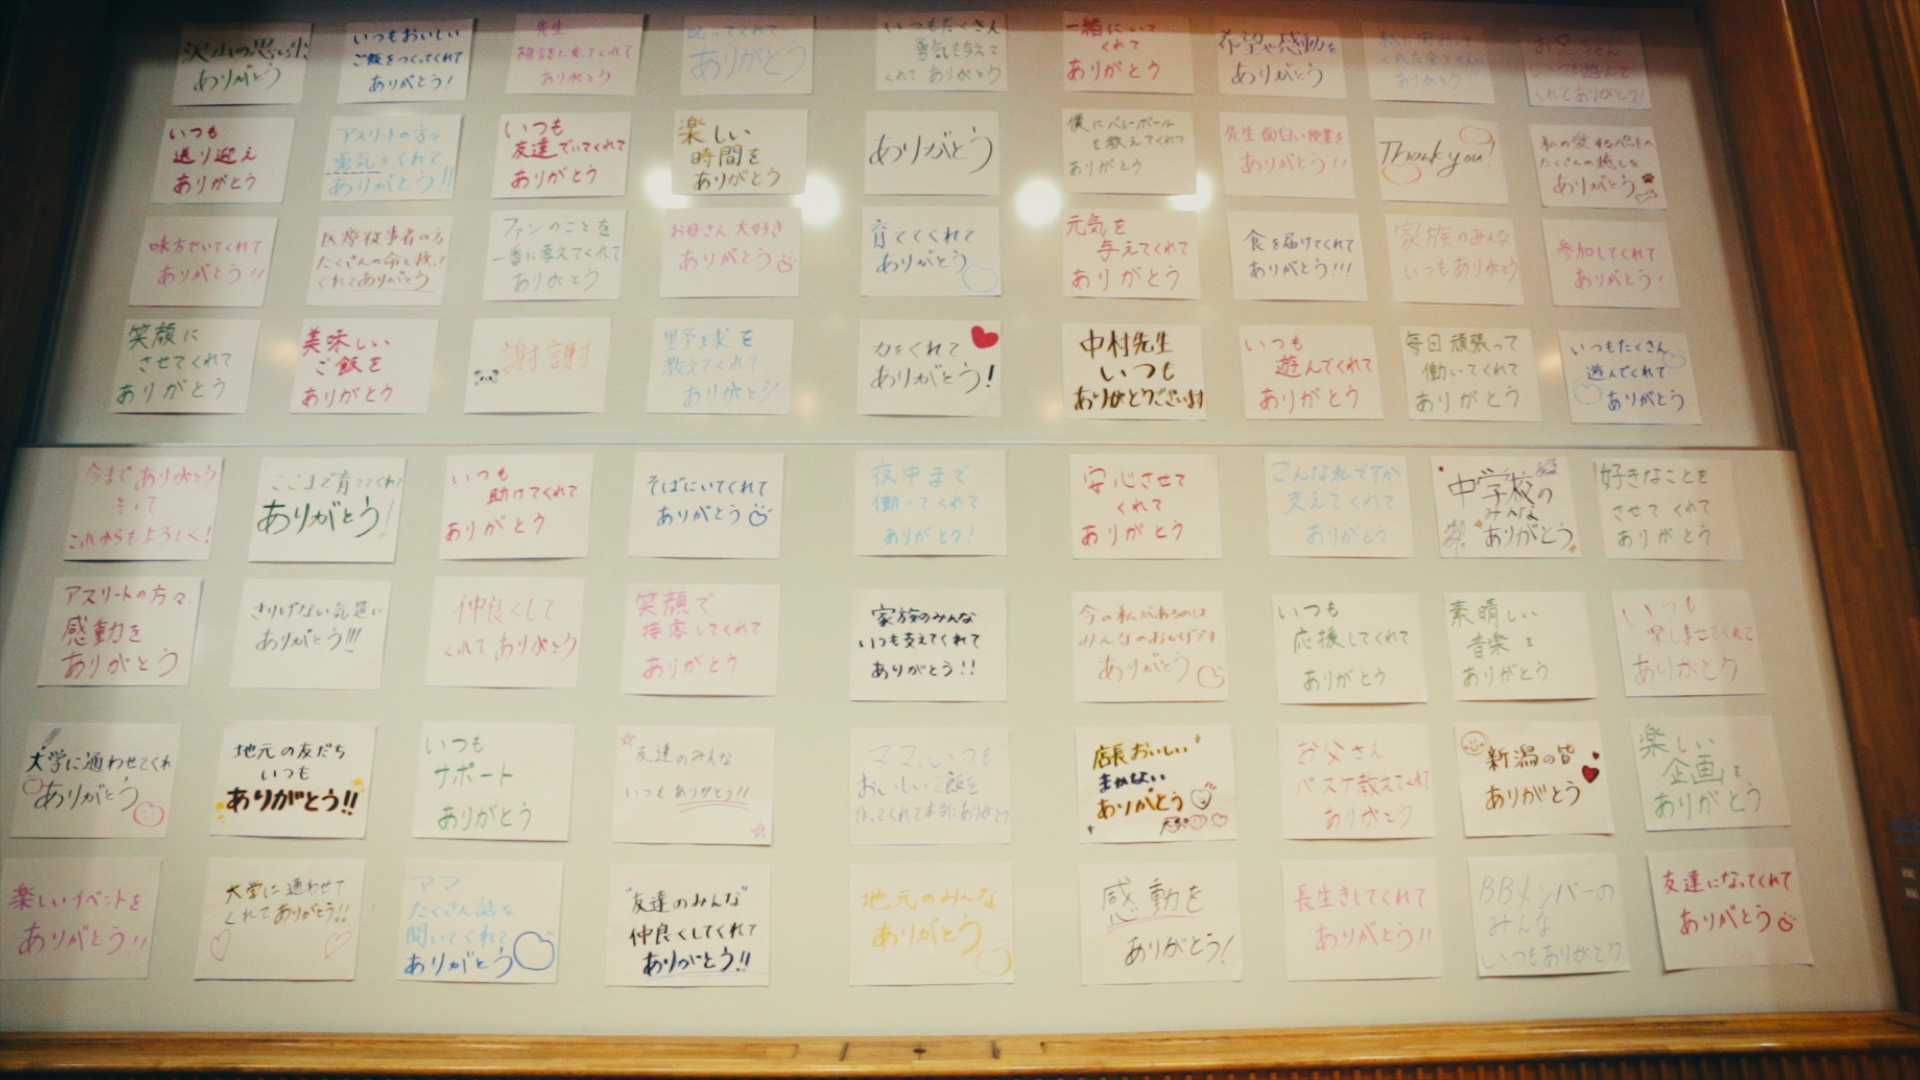 沢山の思い出
ありがとう
いつもおいしい
ご飯をつくってくれて
ありがとう!
先生
相談に乗ってくれて
ありがとう
叱ってくれて
ありがとう
いつもたくさん
勇気を与えて
くれてありがとう
一緒にいて
くれて
ありがとう
希望や感動を
ありがとう
ありがとう
いつも遊んで
くれてありがとう!
いつも
送り迎え
ありがとう
アスリートの方々
勇気をくれて
ありがとう!!
いつも
友達でいてくれて
ありがとう
楽しい
時間を
ありがとう
ありがとう
僕にバレーボール
を教えてくれて
ありがとう
先生面白い授業を
ありがとう!!
Thank you!
私の愛するペットへ
たくさんの癒しを
ありがとう
味方でいてくれて
ありがとう!!
医療従事者の方
たくさんの命を救って
くれてありがとう
ファンのことを
一番に考えてくれて
ありがとう
お母さん大好き
ありがとう
育ててくれて
ありがとう
元気を
与えてくれて
ありがとう
食を届けてくれて
ありがとう!!!
家族のみんな
いつもありがとう
参加してくれて
ありがとう!
笑顔に
させてくれて
ありがとう
美味しい
ご飯を
ありがとう
謝謝
野球を
教えてくれて
ありがとう
力をくれて
ありがとう!
中村先生
いつも
ありがとうございます
いつも
遊んでくれて
ありがとう
毎日頑張って
働いてくれて
ありがとう
いつもたくさん
遊んでくれて
ありがとう
今までありがとう
そして
これからもよろしく!
ここまで育ててくれて
ありがとう!
いつも
助けてくれて
ありがとう
そばにいてくれて
ありがとう
夜中まで
働いてくれて
ありがとう!
安心させて
くれて
ありがとう
こんな私ですが
支えてくれて
ありがとう
中学校の
みんな
ありがとう
好きなことを
させてくれて
ありがとう
アスリートの方々、
感動を
ありがとう
さりげない気遣い
ありがとう!!!
仲良くして
くれてありがとう
笑顔で
接客してくれて
ありがとう
家族のみんな
いつも支えてくれて
ありがとう!!
今の私があるのは
みんなのおかげです
ありがとう
いつも
応援してくれて
ありがとう
素晴しい
音楽を
ありがとう
いつも
楽しませてくれて
ありがとう
大学に通わせてくれ
ありがとう
地元の友だち
いつも
ありがとう!!
いつも
サポート
ありがとう
友達のみんな
いつもありがとう!!
ママ、いつも
おいしいご飯を
作ってくれて本当にありがとう
店長おいしい
まかない
ありがとう
お父さん
バスケ教えてくれて
ありがとう
新潟の皆
ありがとう
楽しい
企画を
ありがとう
楽しいイベントを
ありがとう!!
大学に通わせて
くれてありがとう!!
ママ
たくさん話を
聞いてくれて
ありがとう
"友達のみんな"
仲良くしてくれて
ありがとう!!
地元のみんな
ありがとう
感動を
ありがとう!
長生きしてくれて
ありがとう!!
BBメンバーの
みんな
いつもありがとう
友達になってくれて
ありがとう